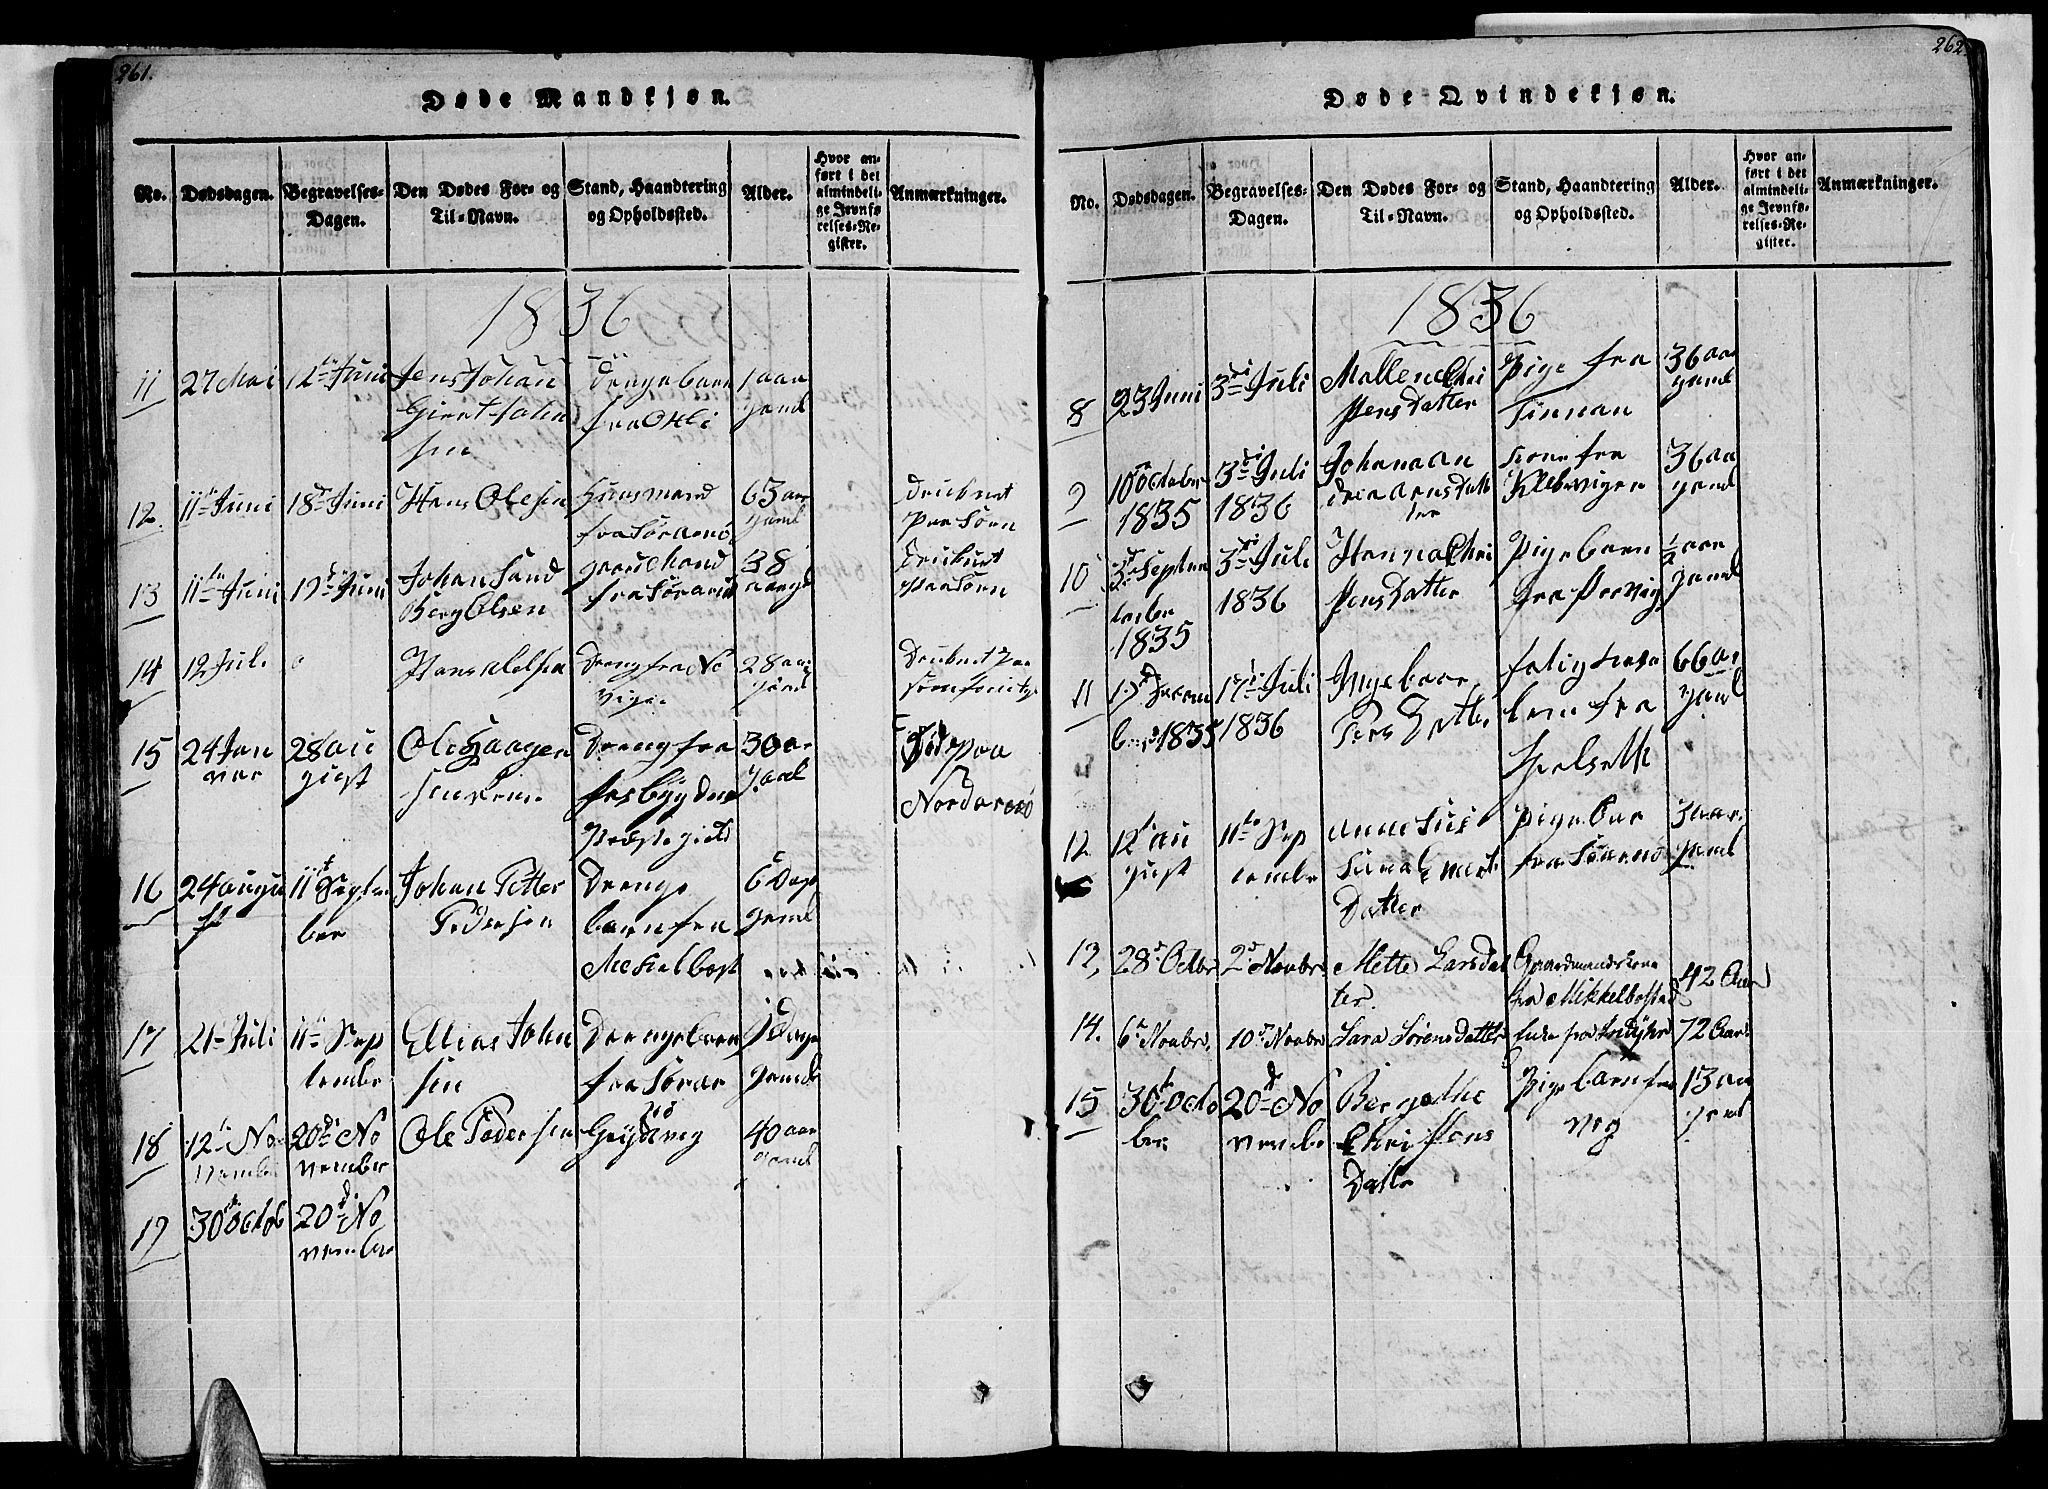 261.
Døde Mandkjøn.
No.
Dødsdagen.
Begravelses-
Dagen.
Den Dødes For- og
Til-Navn.
Stand, Haandtering
og Opholdssted.
Alder.
Hvor an-
ført i det
almindeli-
ge Jevnfø-
relses-Re-
gister.
Anmærkninger.
1836
11
27 Mai
12te Juni
Jens Johan
Giert John
sen
Drengebarn
fra
1 aar
gaml
12
11te Juni
18de Juni
Hans Olesen
Huusmand
fra Sørarnö
63 aar
gaml
Druknet
paa Søen
13
11te Juni
19de Juni
Johan Sand
Berg Olsen
gaardMand
fra Sørarnö
38
aar gl
Druknet
paa Søen
14
12 Juli
Hans Olsen
Dreng fra No
vigen
28 aar
gaml
Druknet paa
15
24 Jan
var
28 au
gust
Ole Haagen
sen
Dreng fra
Præstegield
30 aar
gaml
Død paa
Nordarnö
16
24 augu
st
11te Septem
ber
Johan Petter
Pedersen
Drenge
barn fra
Meskelbost
6 Dage
gaml
17
21 Juli
11te Sep
tembr
Ellias John
sen
Drengebarn
fra Sørar
nö
9 Dage
gamel
18
12te No
vember
20de No
vember
Ole Pedersen
40 aar
gaml
19
30te Octob
20de No
vember
262
Døde Qvindekjøn.
No.
Dødsdagen.
Begravelses-
Dagen.
Den Dødes For- og
Til-Navn.
Stand, Haandtering
og Opholdssted.
Alder.
Hvor an-
ført i det
almindeli-
ge Jevnfø-
relses-Re-
gister.
Anmærkninger.
1836
8
23 Juni
3die Juli
Mallena Chri
stens Datter
Pige fra
Finnan
36 aar
gaml
9
10de October
1835
3die Juli
1836
Johanna An
drea Arnsdat
ter
kone fra
Klebvigen
36 aar
gaml
10
3de Septem
ber
1835
3die Juli
1836
Hanna Chri
stens Datter
Pigebarn
fra
1/2 aar
gaml
11
Decem
ber 1835
17de Juli
1836
Ingebaar
Pers Datter
fatig
lem fra
Hielseth
66 aar
gaml
12
12te au
gust
11te Sep
tembr
Anne
Datter
Pigebar
fra Sørarnö
3 aar
gaml
13
28de Octbr
2de Novbr
Mette Larsdat
ter.
Gaardmandskone
fra Mikkelbostad
42 Aar
14.
6te Novbr.
10de Novbr
Sara SørensDatter
Enke fra
72 Aar
15
30te Octo
ber
20de No
vembr
Bergethe
Christens
Datter
Pigebarn fra
Vig
13 aar
gaml